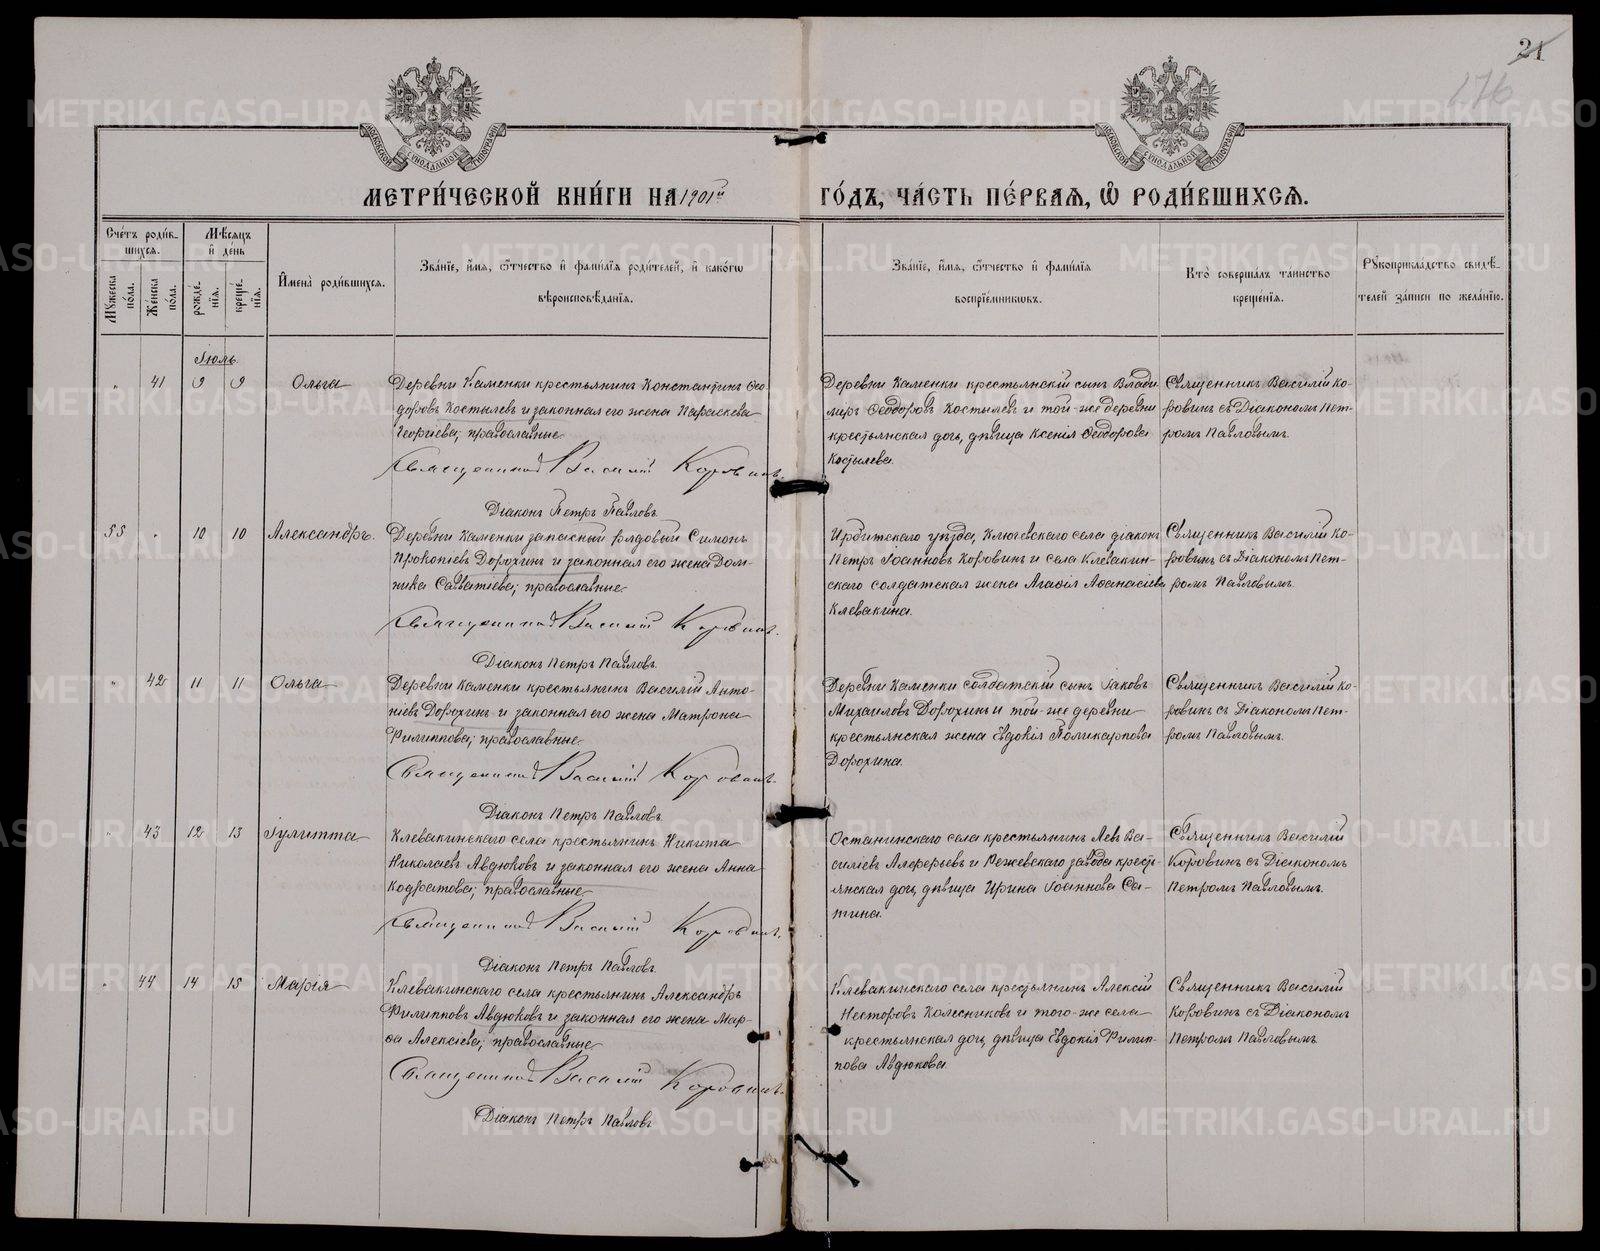 21
176
МЕТРИ́ЧЕСКОЙ КНИ́ГИ НА 1901й ГО́ДЪ, ЧА́СТЬ ПЕ́РВАЯ, Ѡ РОДИ́ВШИХСЯ.
Сче́тъ роди́вшихся.
Мꙋжеска по́ла.
Же́нска по́ла.
Мѣ́сяцъ и де́нь
рожде́нїя.
креще́нїя.
Имена̀ роди́вшихся.
Зва́нїе, и́мя, ѻ́тчество и фами́лїя роди́телей, и како́гѡ
вѣроисповѣ́данїя.
Зва́нїе, и́мя, ѻ́тчество и фами́лїя
воспрїе́мниковъ.
Кто̀ соверша́лъ та́инство
креще́нїя.
Рꙋкоприкла́дство свидѣ́-
телей за́писи по жела́нїю.
Іюль.
" 41 9 9 Ольга
Деревни Каменки крестьянинъ Константинъ Ѳео-
доровъ Костылевъ и законная его жена Параскева
Георгіева; православные
Священникъ Василій Коровинъ.
Діаконъ Петръ Павловъ
Деревни Каменки крестьянскій сынъ Влади-
міръ Ѳеодоровъ Костылевъ и той-же деревни
крестьянская дочь, дѣвица Ксенія Ѳеодорова
Костылева.
Священникъ Василій Ко-
ровинъ съ Діакономъ Пет-
ромъ Павловымъ.
55 " 10 10 Александръ.
Деревни Каменки запасный рядовый Симонъ
Прокопіевъ Дорохинъ и законная его жена Дом-
ника Савватіева; православные
Священникъ Василій Коровинъ.
Діаконъ Петръ Павловъ.
Ирбитскаго уѣзда, Ключевскаго села діаконъ
Петръ Іоанновъ Коровинъ и села Клевакин-
скаго солдатская жена Агаѳія Аѳанасіева
Клевакина.
Священникъ Василій Ко-
ровинъ съ Діакономъ Пет-
ромъ Павловымъ.
" 42 11 11 Ольга
Деревни Каменки крестьянинъ Василій Анто-
ніевъ Дорохинъ и законная его жена Матрона
Филиппова; православные.
Священникъ Василій Коровинъ.
Діаконъ Петръ Павловъ.
Деревни Каменки солдатскій сынъ Іаковъ
Михаиловъ Дорохинъ и той-же деревни
крестьянская жена Евдокія Поликарпова
Дорохина.
Священникъ Василій Ко-
ровинъ съ Діакономъ Пет-
ромъ Павловымъ.
" 43 12 13 Іулитта
Клевакинскаго села крестьянинъ Никита
Николаевъ Авдюковъ и законная его жена Анна
Кодратова; православные
Священникъ Василій Коровинъ.
Діаконъ Петръ Павловъ.
Останинскаго села крестьянинъ Левъ Ва-
силіевъ Алферьевъ и Режевскаго завода кресть-
янская дочь, дѣвица Ирина Іоаннова Са-
тина.
Священникъ Василій
Коровинъ съ Діакономъ
Петромъ Павловымъ.
" 44 14 15 Марія
Клевакинскаго села крестьянинъ Александръ
Филипповъ Авдюковъ и законная его жена Мар-
ѳа Алексіева; православные
Священникъ Василій Коровинъ.
Діаконъ Петръ Павловъ
Клевакинскаго села крестьянинъ Алексій
Несторовъ Колесниковъ и того-же села
крестьянская дочь, дѣвица Евдокія Филип-
пова Авдюкова.
Священникъ Василій
Коровинъ съ Діакономъ
Петромъ Павловымъ
METRIKI.GASO-URAL.RU